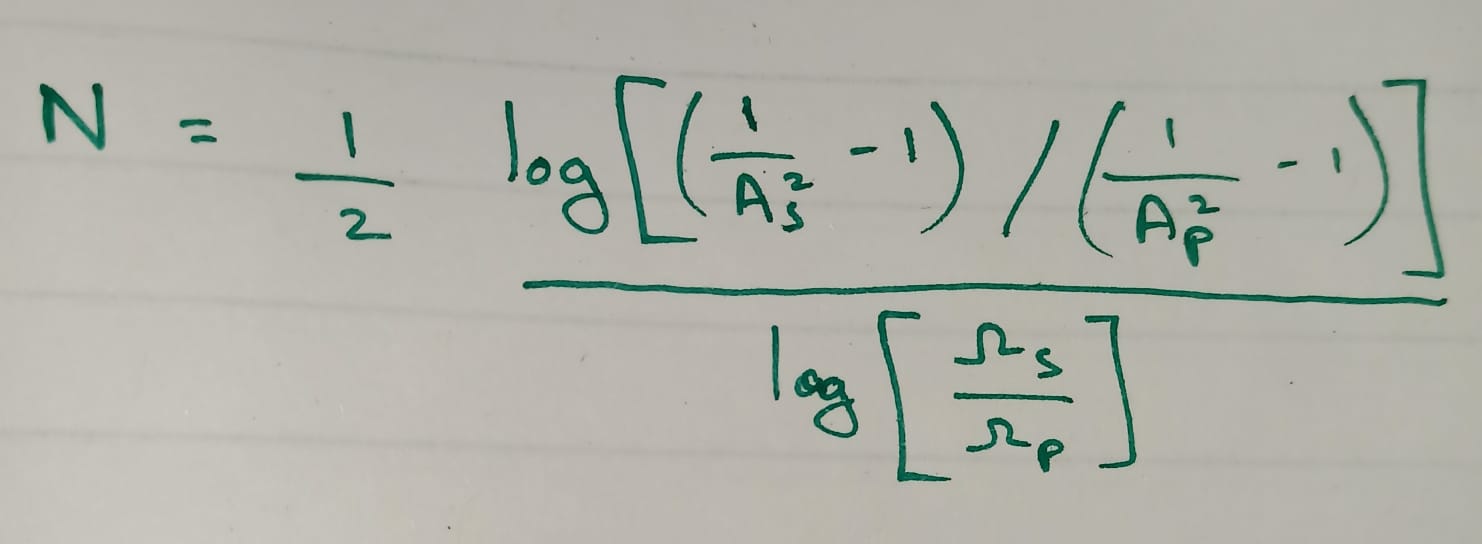 N = 1/2 log[(1/A_s^2 - 1) / (1/A_p^2 - 1)] / log[Ω_s/Ω_p]